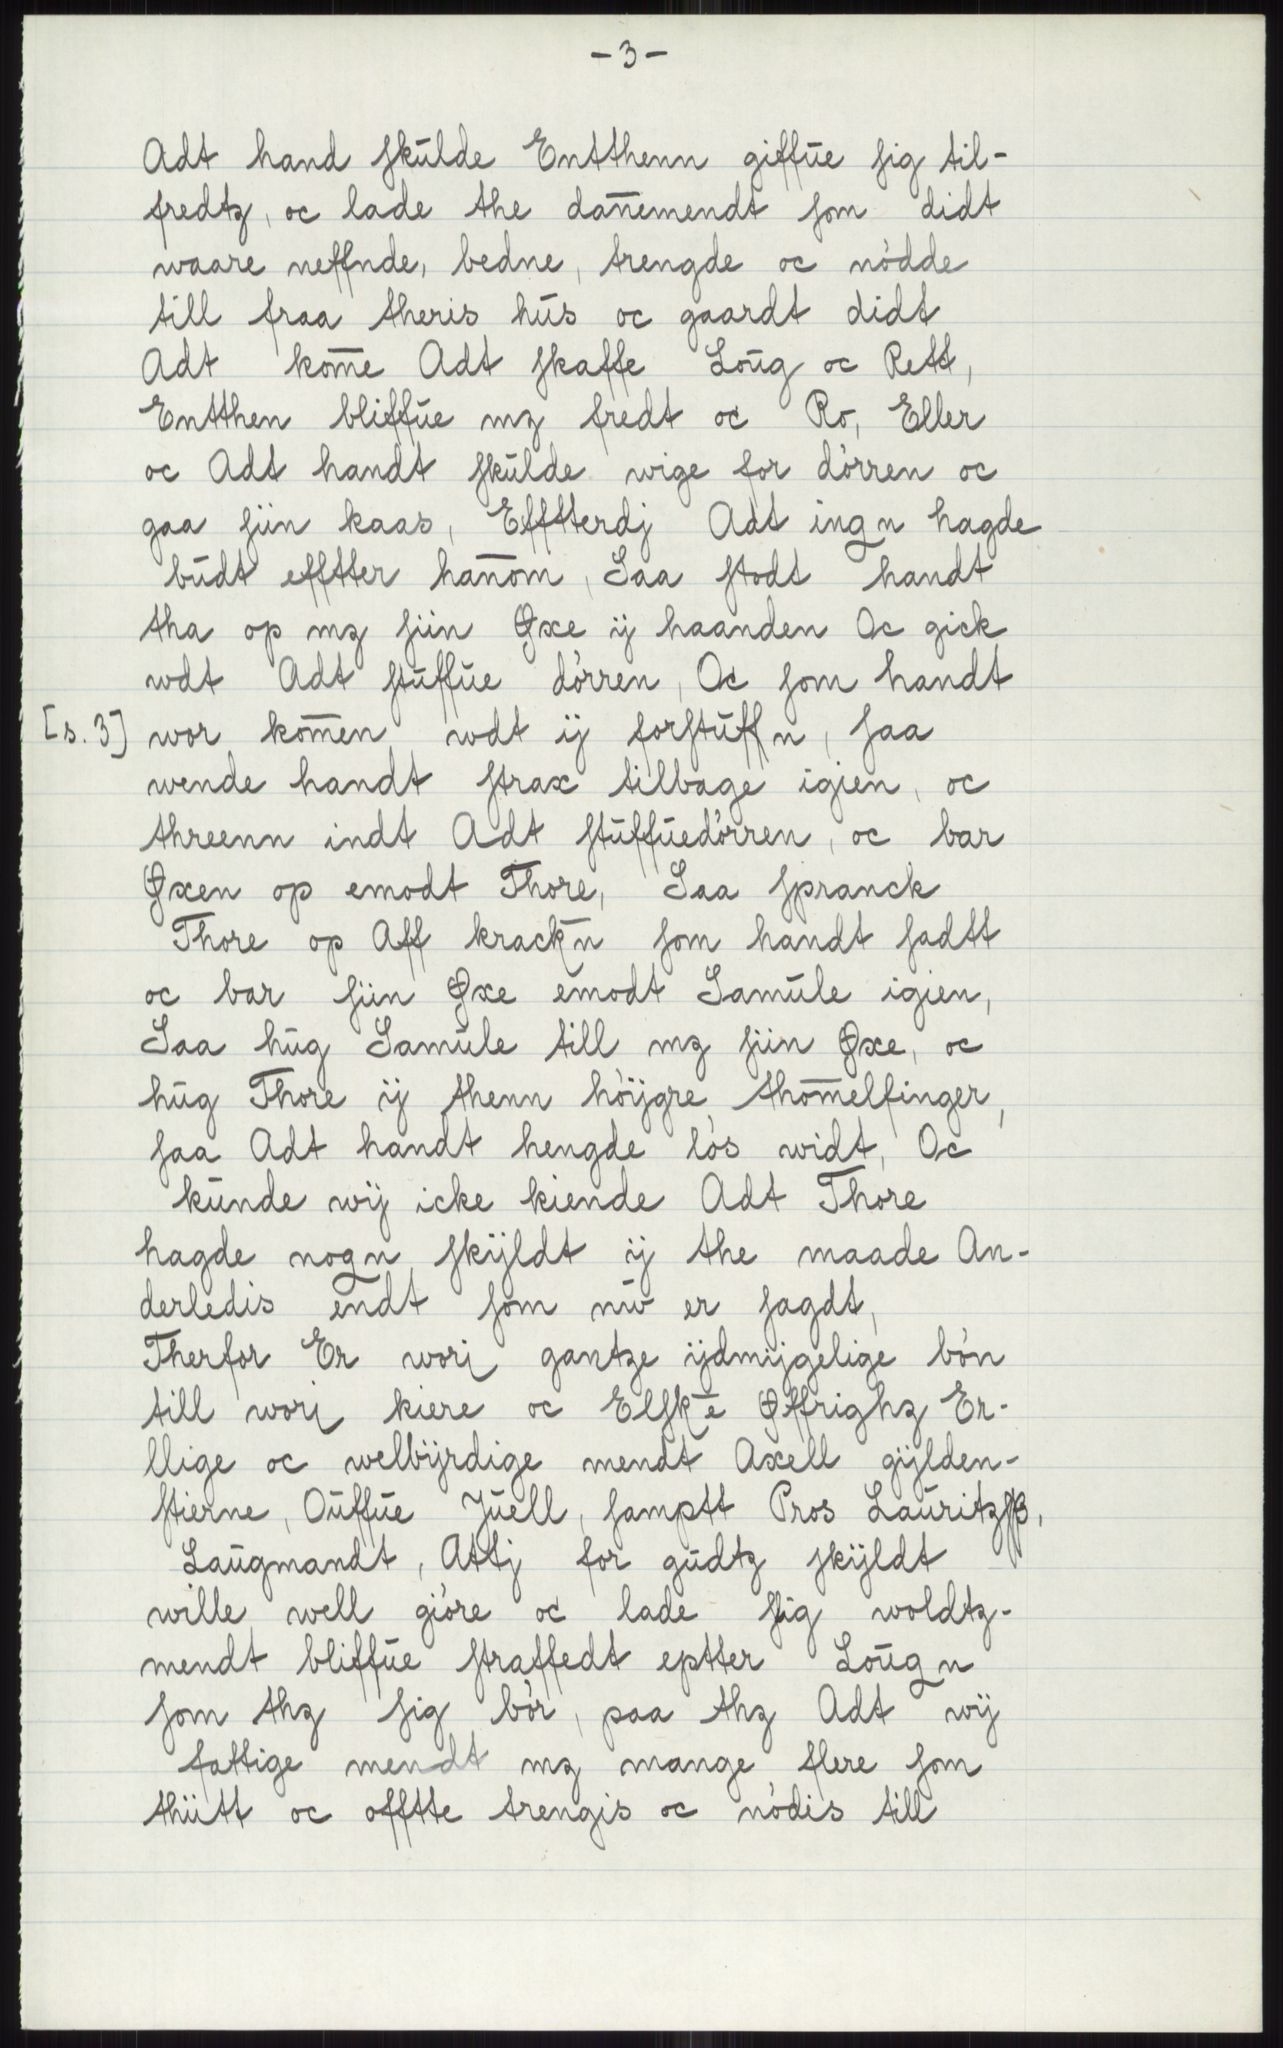 - 3 -
Adt hand skulde Entthenn giffue sig til-
fredtz, oc lade the dan̄emendt som didt
waare neffnde, bedne, trengde oc nødde
till fraa theris hus oc gaardt didt
Adt kom̄e Adt skaffe Loug oc Rett,
Entthen bliffue mz fredt oc Ro, Eller
oc Adt handt skulde wige for dørren oc
gaa siin kaas, Efftterdj Adt ingn hagde
budt efftter han̄om, Saa stodt handt
tha op mz siin Øxe ij haanden Oc gick
wdt Adt stuffue dørren, Oc som handt
[s. 3] wor kom̄en wdt ij forstuffn, saa
wende handt strax tilbage igien, oc
threenn indt Adt stuffuedørren, oc bar
Øxen op emodt Thore, Saa spranck
Thore op Aff krackn̄ som handt sadtt
oc bar siin Øxe emodt Samule igien,
Saa hug Samule till mz siin Øxe, oc
hug Thore ij thenn høijgre thom̄elfinger,
saa Adt handt hengde løs widt, Oc
kunde wij icke kiende Adt Thore
hagde nogn skijldt ij the maade An-
derledis endt som nw er sagdt,
Therfor Er worj gantze ijdmijgelige bøn
till worj kiere oc Elskē Øffrighz Er-
llige oc welbijrdige mendt Axell gijlden-
stierne, Ouffue Juell, samptt Pros Lauritzsß,
Laugmandt, Attj for gudtz skijldt
wille well giøre oc lade sig woldtz-
mendt bliffue straffedt eptter Lougn
som thz sig bør, paa thz Adt wij
fattige mendt mz mange flere som
thiitt oc offtte trengis oc nødis till